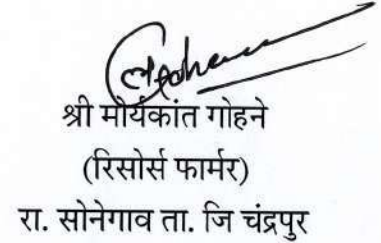 श्री मौर्यकांत गोहने
(रिसोर्स फार्मर)
रा. सोनेगाव ता. जि चंद्रपुर